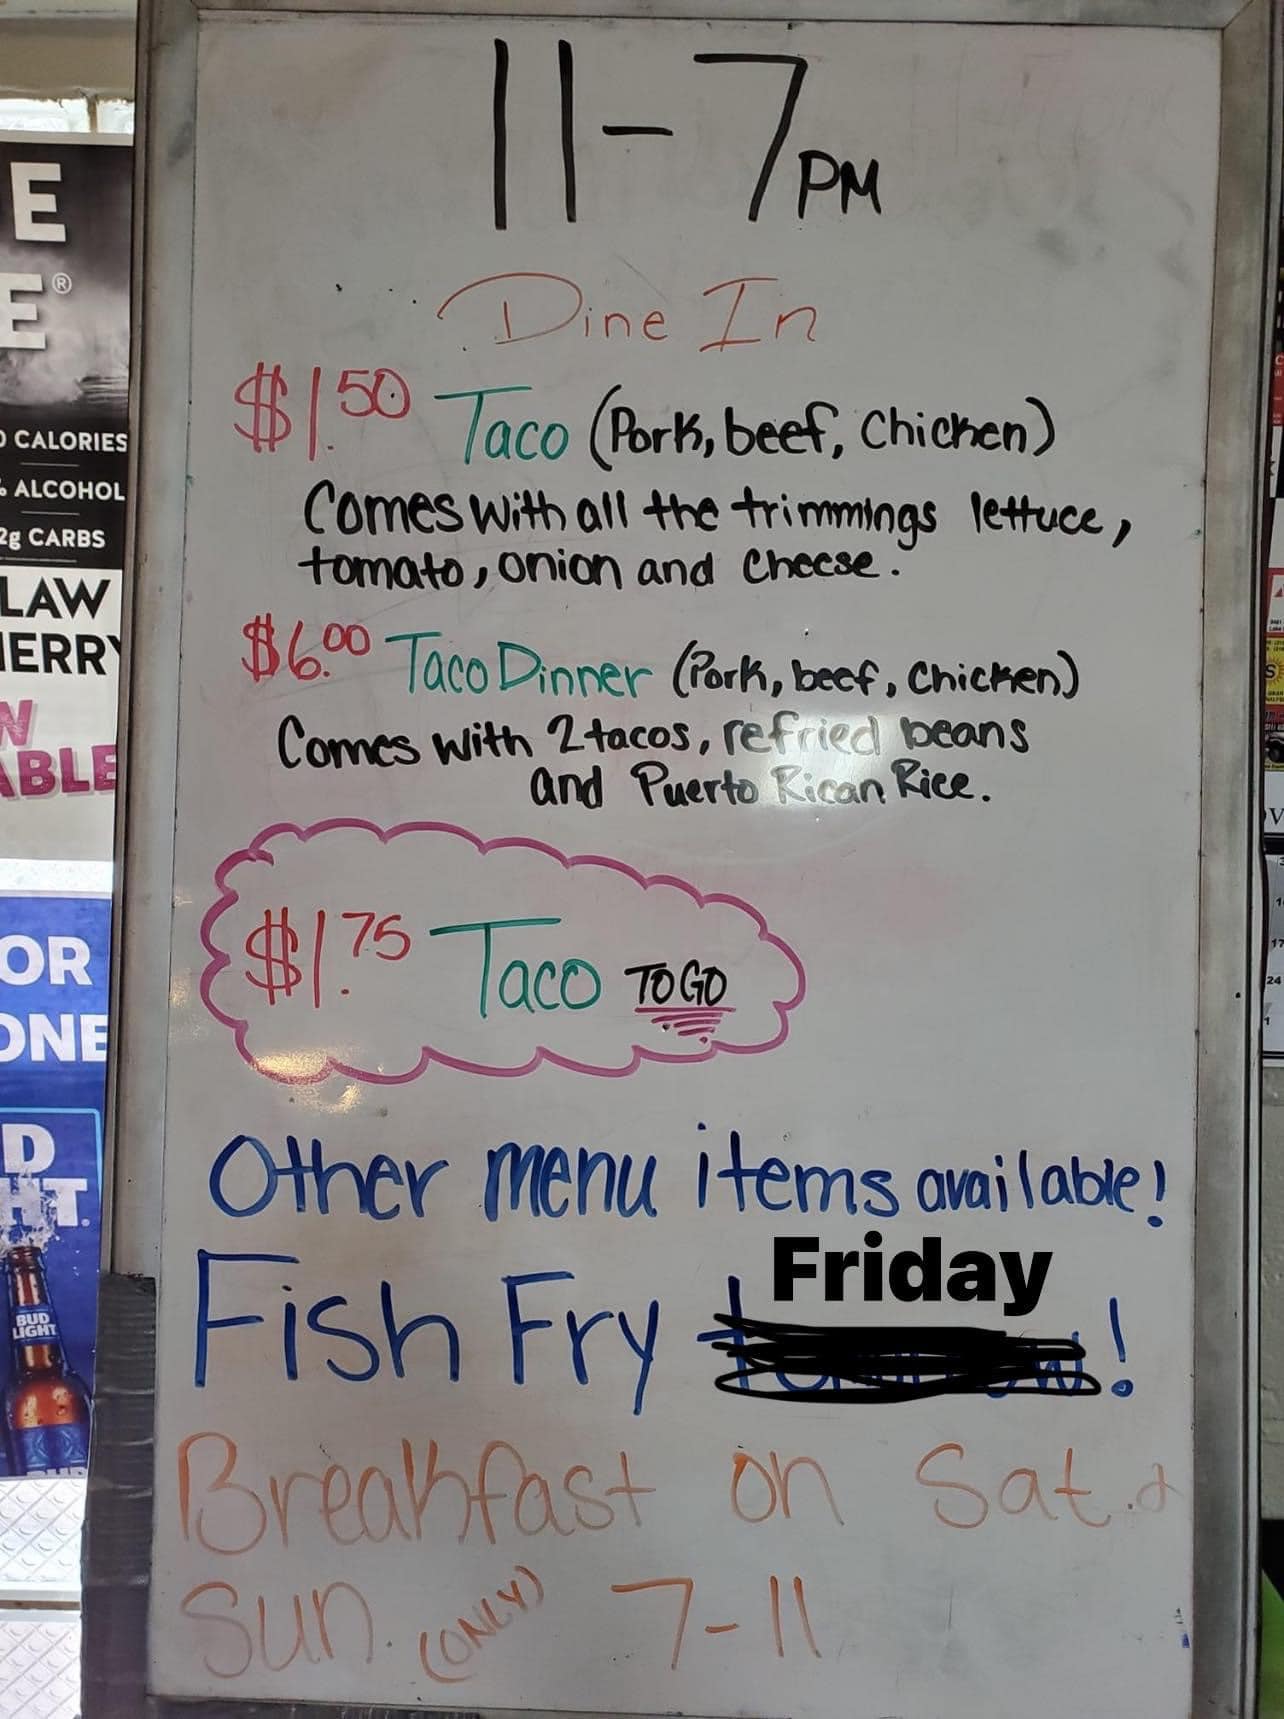 11-7PM
Dine In
$1.50 Taco (Pork, beef, Chicken)
Comes with all the trimmings lettuce,
tomato, onion and cheese.
$6.00 Taco Dinner (Pork, beef, Chicken)
Comes with 2 tacos, refried beans
and Puerto Rican Rice.
$1.75 Taco TO GO
Other menu items available!
Friday
Fish Fry !
Breakfast on Sat. &
Sun. (ONLY) 7-11
E
E®
0 CALORIES
ALCOHOL
2g CARBS
LAW
HERRY
ABLE
OR
ONE
D
HT.
BUD
LIGHT
17
24